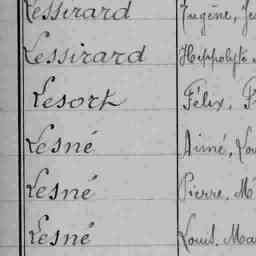 Lessirard Eugène, Je
Lessirard Hippolyte
Lesort Félix, F
Lesné Aimé, Lou
Lesné Pierre, M
Lesné Louis, Ma